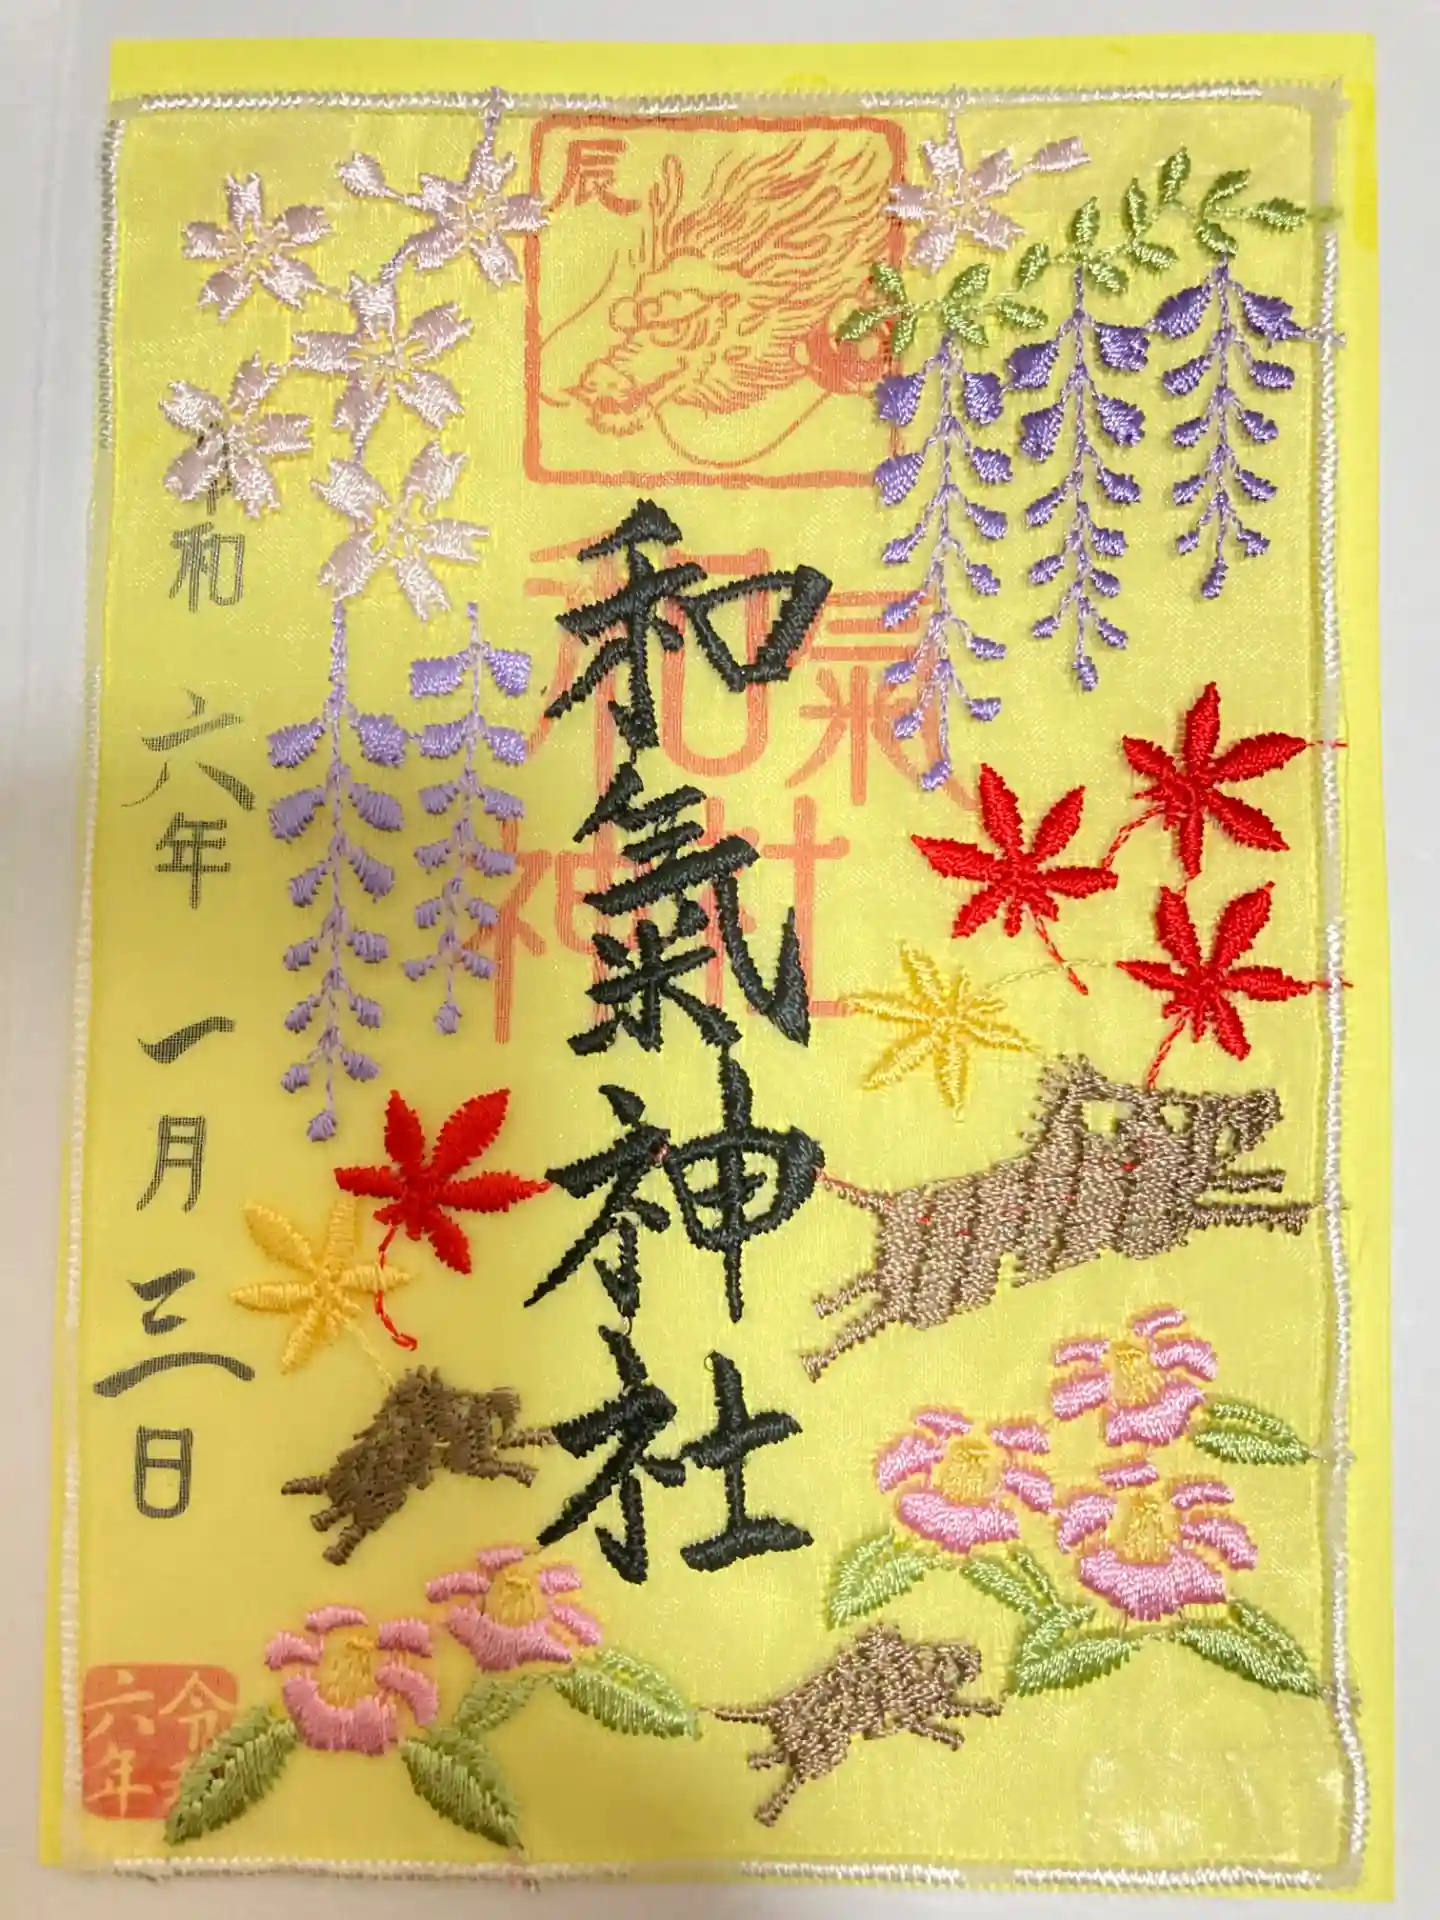 辰
和氣
神社
和氣神社
令和六年一月三日
令和
六年